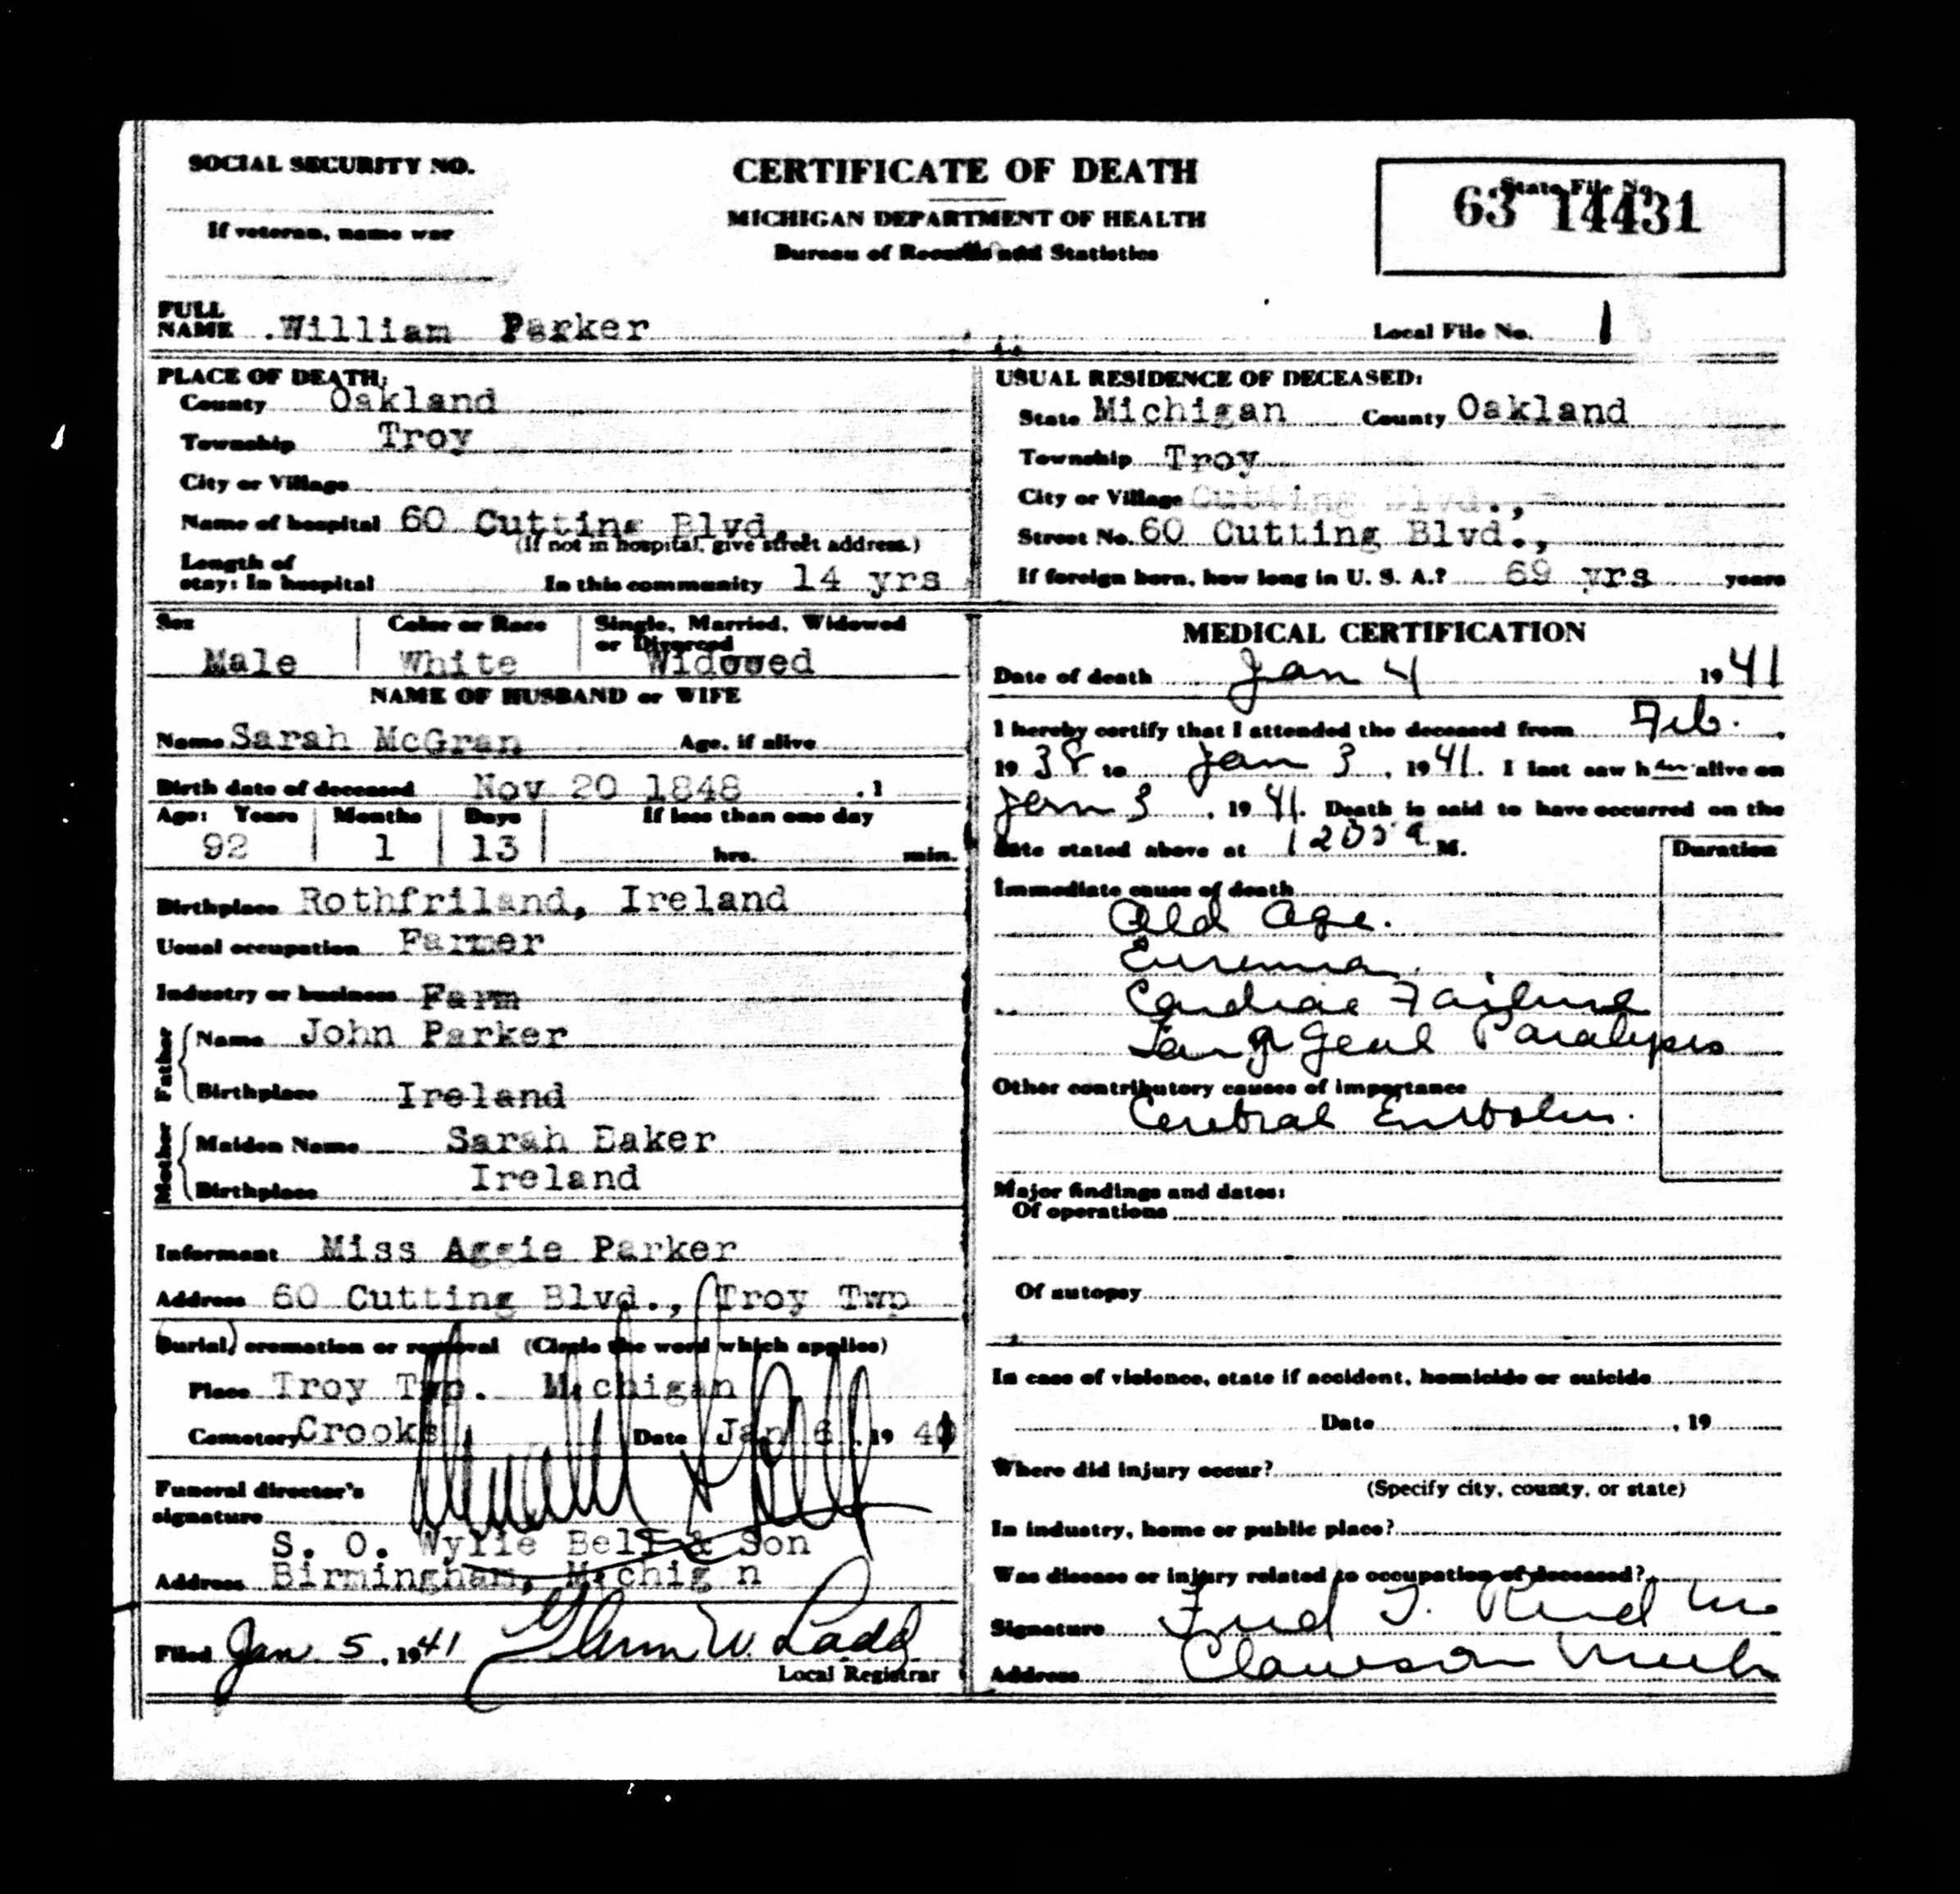 SOCIAL SECURITY NO.
If veteran, name war
CERTIFICATE OF DEATH
MICHIGAN DEPARTMENT OF HEALTH
Bureau of Records and Statistics
State File No.
63 14431
FULL NAME William Parker
Local File No. 1
PLACE OF DEATH:
County Oakland
Township Troy
City or Village
Name of hospital 60 Cutting Blvd.
(If not in hospital, give street address.)
Length of stay: In hospital In this community 14 yrs
USUAL RESIDENCE OF DECEASED:
State Michigan County Oakland
Township Troy
City or Village Cutting Blvd.,
Street No. 60 Cutting Blvd.,
If foreign born, how long in U. S. A.? 69 yrs years
Sex Male
Color or Race White
Single, Married, Widowed or Divorced Widowed
NAME OF HUSBAND or WIFE
Name Sarah McGran Age, if alive
Birth date of deceased Nov 20 1848 , 1
Age: Years Months Days If less than one day
92 1 13 hrs. min.
Birthplace Rothfriland, Ireland
Usual occupation Farmer
Industry or business Farm
Father
Name John Parker
Birthplace Ireland
Mother
Maiden Name Sarah Baker
Birthplace Ireland
Informant Miss Aggie Parker
Address 60 Cutting Blvd., Troy Twp
Burial, cremation or removal (Circle the word which applies)
Place Troy Twp. Michigan
Cemetery Crooks Date Jan 6, 19 41
Funeral director's signature
S. O. Wylie Bell & Son
Address Birmingham, Michig n
Filed Jan. 5, 1941 Glenn W. Ladd
Local Registrar
MEDICAL CERTIFICATION
Date of death Jan 4 1941
I hereby certify that I attended the deceased from Feb.,
1938 to Jan 3, 1941. I last saw him alive on
Jan 3, 1941. Death is said to have occurred on the
date stated above at M.
Duration
Immediate cause of death
Old Age.
Cardiac Failure
Paralysis
Other contributory causes of importance
Cerebral Embolus.
Major findings and dates:
Of operations
Of autopsy
In case of violence, state if accident, homicide or suicide
Date , 19
Where did injury occur?
(Specify city, county, or state)
In industry, home or public place?
Was disease or injury related to occupation of deceased?
Signature Fred T.
Address Clawson Mich